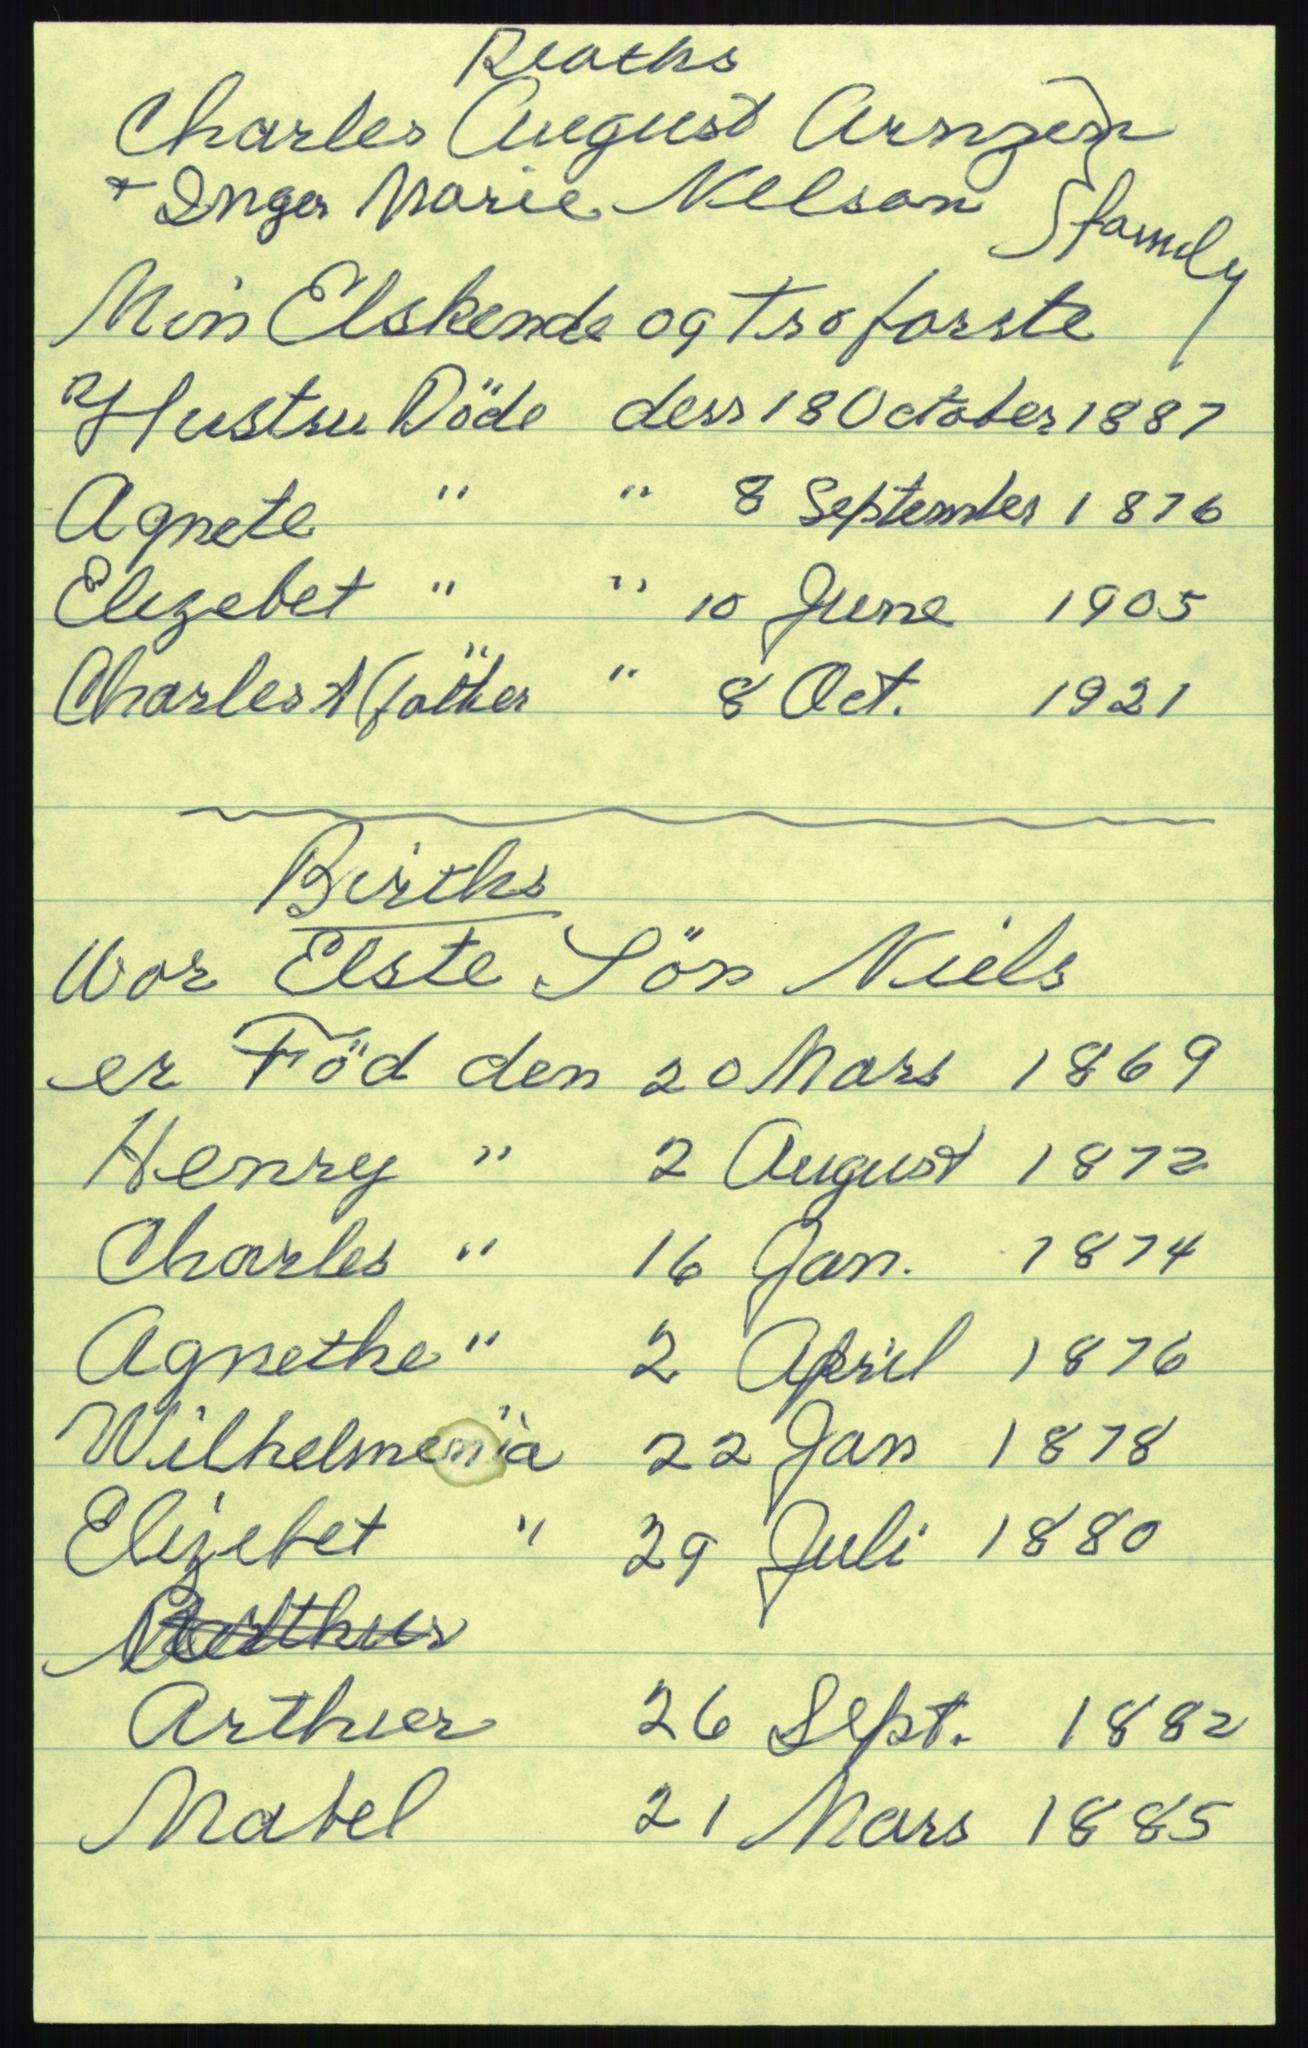 Deaths
Charles August Arnzen
+ Inger Marie Nelson } family
Min Elskende og Trofaste
Hustru Döde den 18 October 1887
Agnete " " 8 September 1876
Elizebet " " 10 June 1905
Charles A (father " " 8 Oct. 1921
Births
Vor Elste Sön Niels
er Föd den 20 Mars 1869
Henry " 2 August 1872
Charles " 16 Jan. 1874
Agnethe " 2 April 1876
Wilhelmenia " 22 Jan 1878
Elizebet " 29 Juli 1880
Arthur 26 Sept. 1882
Mabel 21 Mars 1885